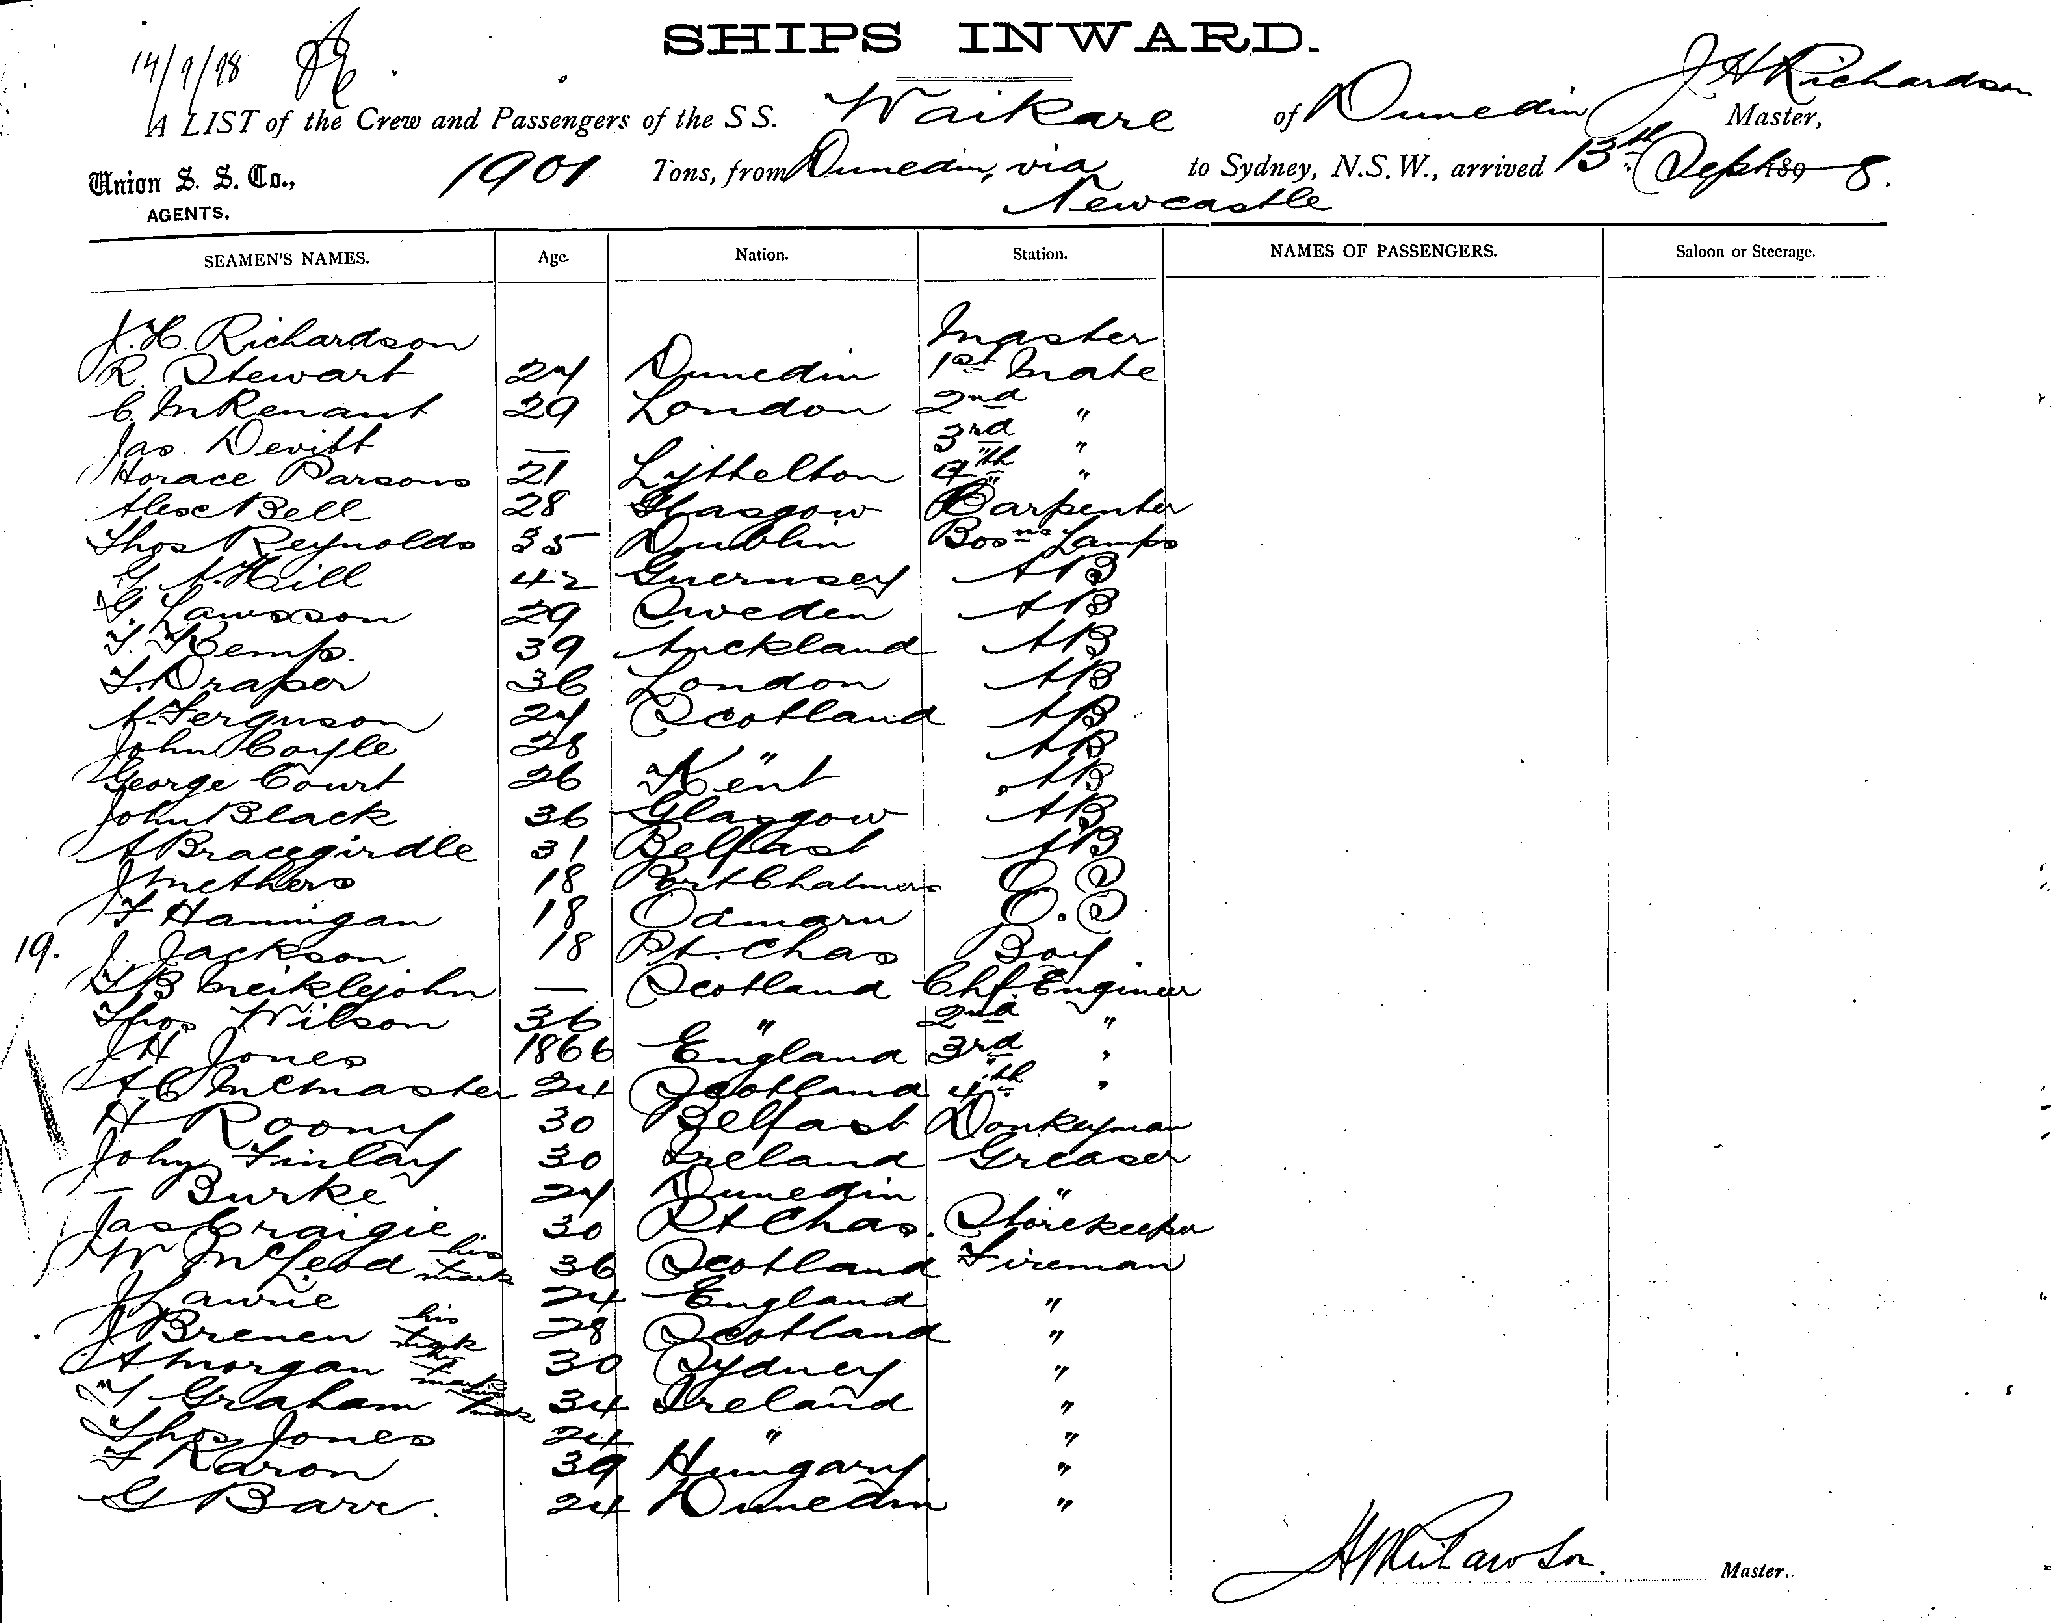 SHIPS INWARD.
14/9/98
A LIST of the Crew and Passengers of the S S. Waikare of Dunedin J H Richardson Master,
Union S. S. Co., 1901 Tons, from Dunedin, via Newcastle to Sydney, N.S.W., arrived 13th Sept 189 8.
AGENTS.
SEAMEN'S NAMES. Age. Nation. Station. NAMES OF PASSENGERS. Saloon or Steerage.
J. H. Richardson Master
R. Stewart 27 Dunedin 1st Mate
C. 29 London 2nd "
Jas. Devitt — 3rd "
Horace Parsons 21 Lyttelton 4th "
Alex Bell 28 Glasgow Carpenter
Thos Reynolds 35 Dublin Bosns Lamps
G. A. Hill 42 Guernsey AB
G. Lawsson 29 Sweden AB
T. Kemp. 39 Auckland AB
T. Draper 36 London AB
A. Ferguson 27 Scotland AB
John Coyle 28 " AB
George Court 26 Kent AB
John Black 36 Glasgow AB
A Bracegirdle 31 Belfast AB
J Methers 18 Port Chalmers O.S
F Hannigan 18 Oamaru O.S
19. J. Jackson 18 Pt. Chas Boy
Meiklejohn — Scotland Chf. Engineer
Thos Wilson 36 " 2nd "
J H Jones 1866 England 3rd "
A C McMaster 24 Scotland 4th "
H Roony 30 Belfast Donkeyman
John Finlay 30 Ireland Greaser
— Burke 27 Dunedin "
Jas Craigie 30 Pt Chas. Storekeeper
W McLeod his mark 36 Scotland Fireman
J Lawrie 24 England "
J Brenen his mark 28 Scotland "
A Morgan his mark 30 Sydney "
T Graham his mark 34 Ireland "
Thos Jones 24 " "
F Karon 39 Hungary "
G Barr. 24 Dunedin "
Master.